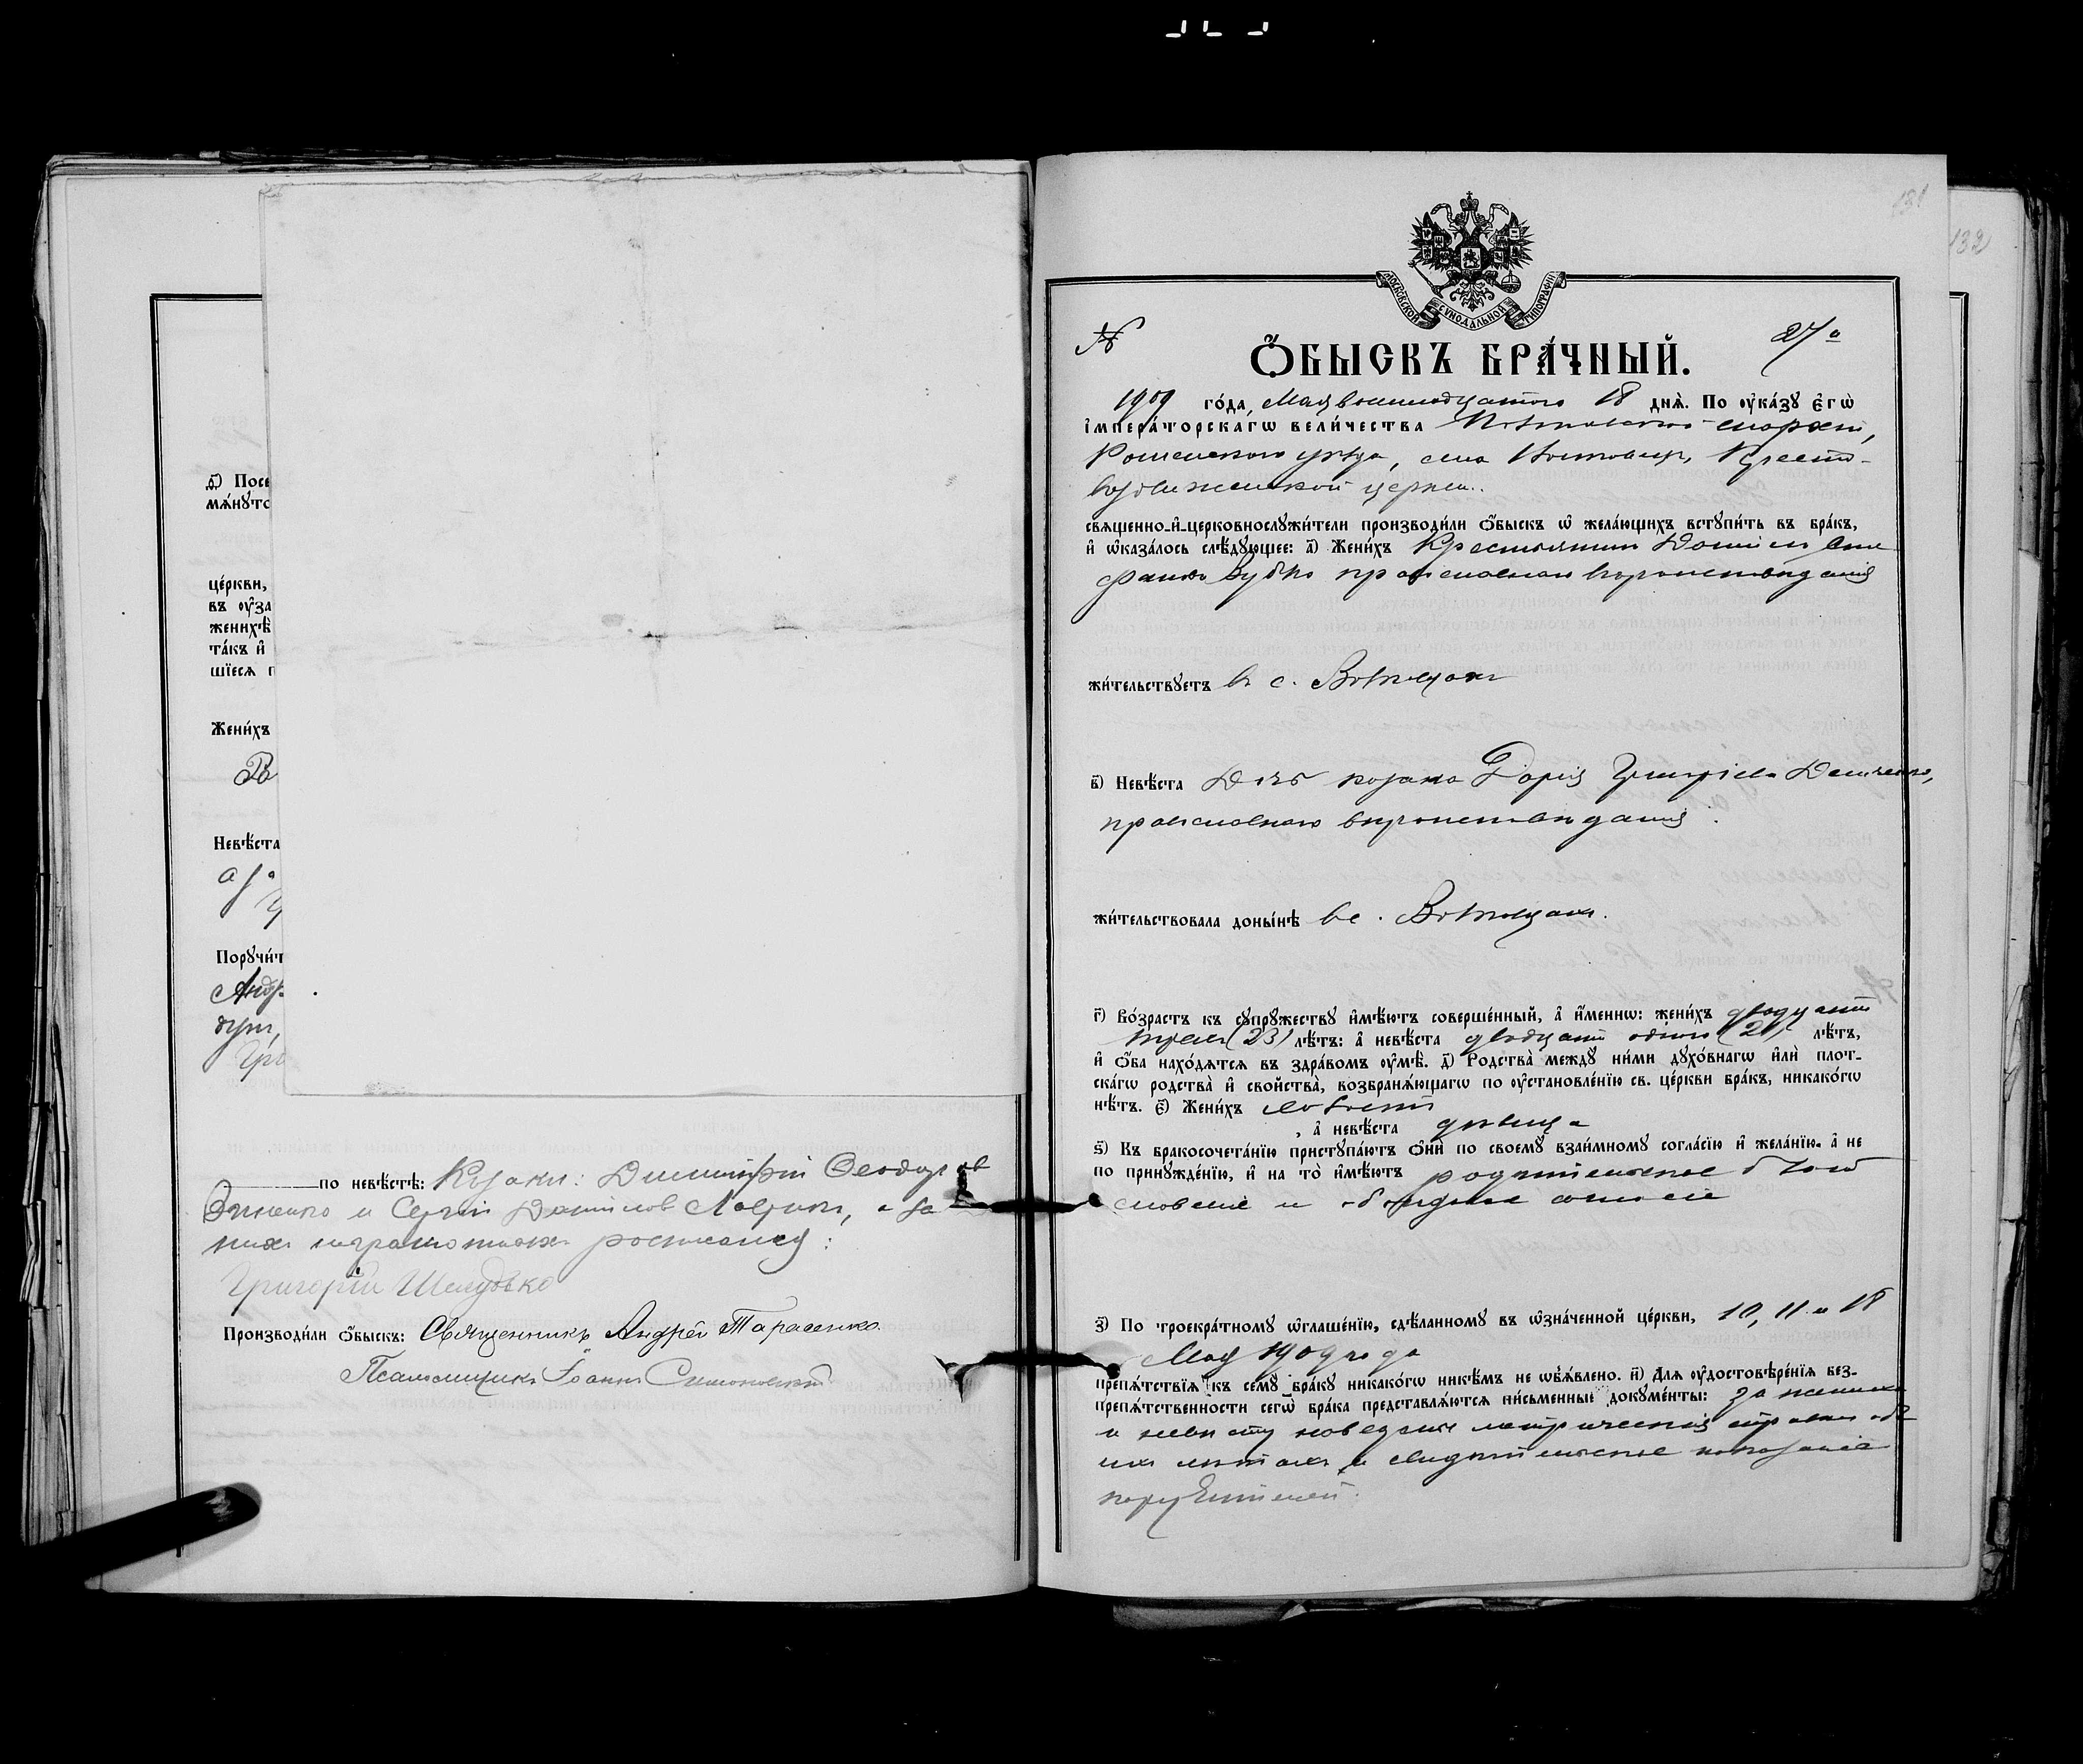 д҃) Посв
мѧнꙋто
це́ркви,
въ ᲂу҆за
женихѣ
та́къ и҆
шїесѧ п
Жени́хъ
Невѣ́ста
а за
Порꙋчи́т
Андр
дут,
Гри
по невѣ́стѣ: Козаки: Димитрій Ѳеодоров
Зиненко и Сергій Даниилов Лавринъ, а за
нихъ неграмотныхъ росписался:
Григорій Шелудько
Производи́ли ѻ҆́быскъ: Священникъ Андрей Тарасенко.
Псаломщикъ Іоаннъ
131
132
МОСКОВСКОЙ СѴНОДАЛЬНОЙ ТИПОГРАФІИ
№ 27-й
Ѻ҆́БЫСКЪ БРА́ЧНЫЙ.
1909 го́да, Мая восемнадцатого 18 днѧ̀. По ᲂу҆ка́зꙋ є҆гѡ̀
і҆мпера́торскагѡ вели́чества Полтавской епархіи,
Роменскаго уѣзда, села Кресто-
воздвиженской церкви.
свѧщенно-и҆-церковнослꙋжи́тели производи́ли ѻ҆́быскъ ѡ҆ жела́ющихъ встꙋпи́ть въ бра́къ,
и҆ ѡ҆каза́лось слѣ́дꙋющее: а҃) Жени́хъ Крестьянинъ Даніилъ Сте
фановъ Зубко православнаго вѣроисповѣданія
жи́тельствꙋетъ въ с.
в҃) Невѣ́ста Дочь козака Дарія Григоріева Демченко,
православнаго вѣроисповѣданія.
жи́тельствовала доны́нѣ въ с.
г҃) Во́зрастъ къ сꙋпрꙋ́жествꙋ и҆мѣ́ютъ соверше́нный, а҆ и҆́меннѡ: жени́хъ двадцати
трехъ (23) лѣ́тъ: а҆ невѣ́ста двадцати одного (21) лѣ́тъ,
и҆ ѻ҆́ба нахо́дѧтсѧ въ здра́вомъ ᲂу҆мѣ̀. д҃) Родства̀ междꙋ ни́ми дꙋхо́внагѡ и҆лѝ плот-
ска́гѡ родства̀ и҆ свойства̀, возбранѧ́ющагѡ по ᲂу҆становле́нїю св. це́ркви бра́къ, никако́гѡ
нѣ́тъ. є҃) Жени́хъ холостъ
, а҆ невѣ́ста дѣвица
ѕ҃) Къ бракосочета́нїю пристꙋпа́ютъ ѻ҆нѝ по своемꙋ̀ взаи́мномꙋ согла́сїю и҆ жела́нїю. а҆ не
по принꙋжде́нїю, и҆ на то̀ и҆мѣ́ютъ родительское благо
словеніе и обоюдное согласіе
з҃) По троекра́тномꙋ ѡ҆глаше́нїю, сдѣ́ланномꙋ въ ѡ҆зна́ченной це́ркви, 10, 11 и 18
Мая 1909 года
препѧ́тствїѧ къ семꙋ̀ бра́кꙋ никако́гѡ никѣ́мъ не ѡ҆б̾ѧ́влено. и҃) Длѧ ᲂу҆достовѣре́нїѧ без-
препѧ́тственности сегѡ̀ бра́ка представлѧ́ютсѧ пи́сьменные докꙋме́нты: за жениха
и невѣсту наведены метрическія справки объ
ихъ лѣтахъ и свидѣтельское показаніе
поручителей.